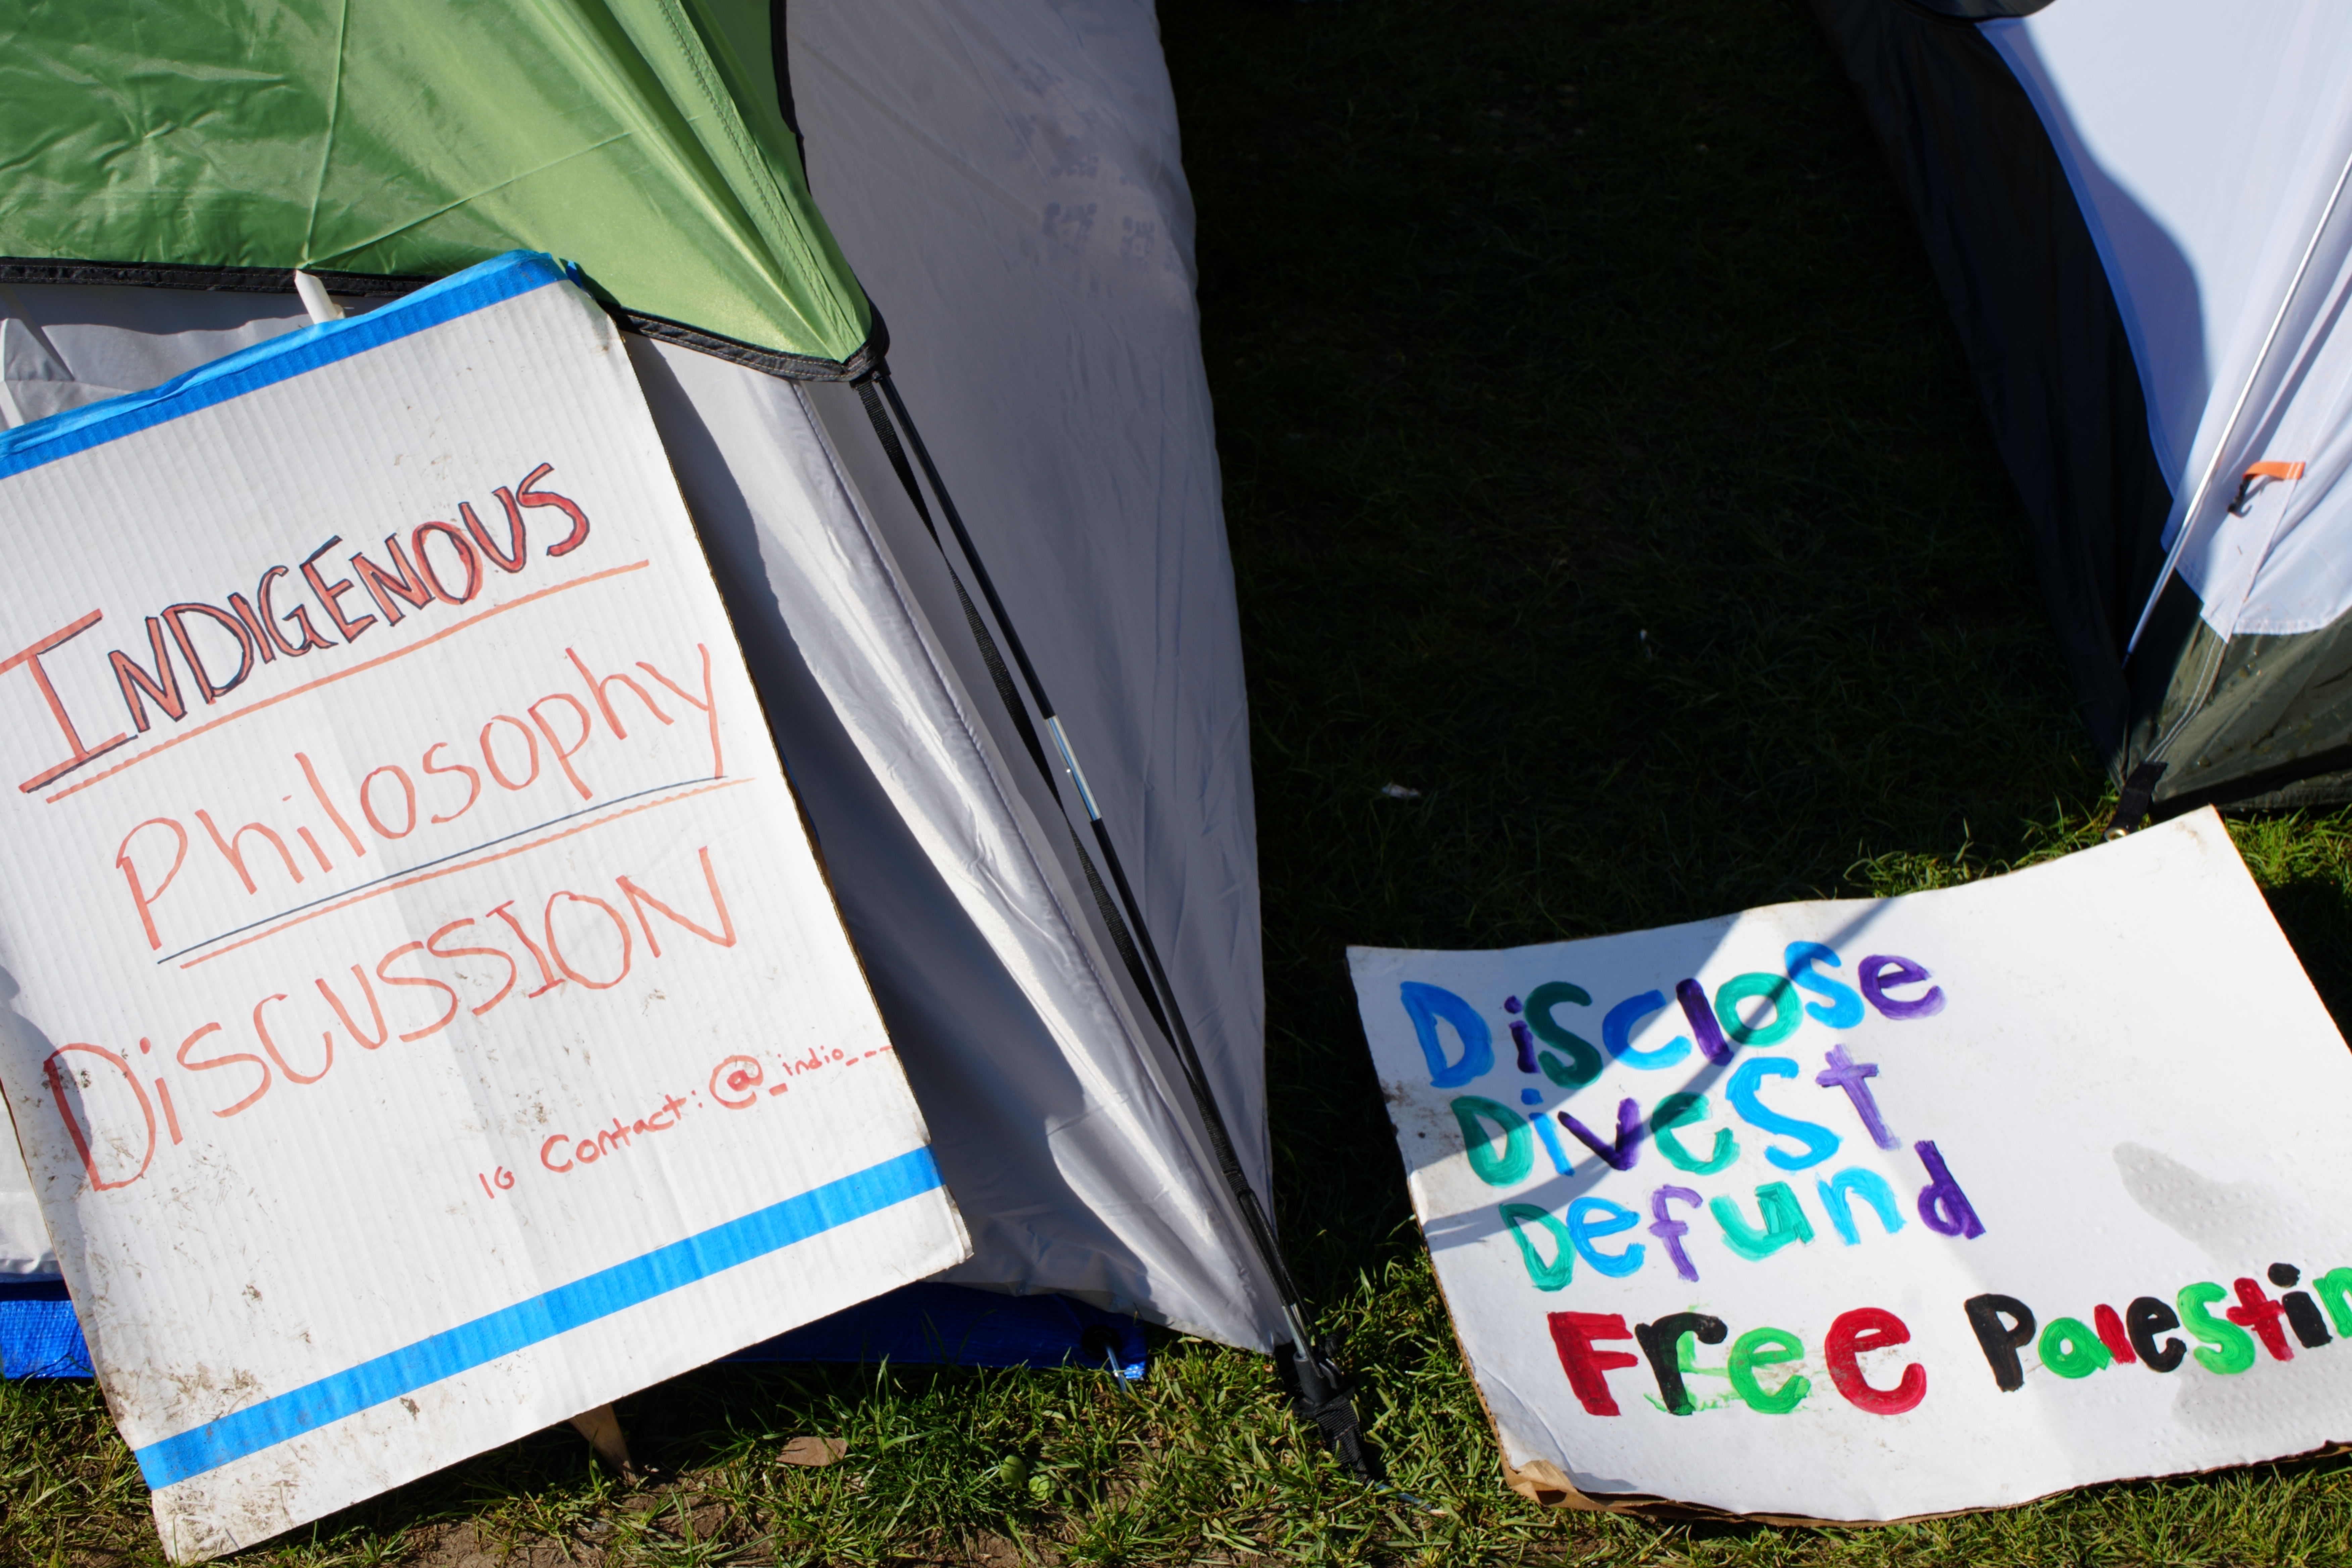 INDIGENOUS
Philosophy
DiSCUSSION
IG Contact: @_indio_---
DiSclose
DiveSt
Defund
Free PaleStin